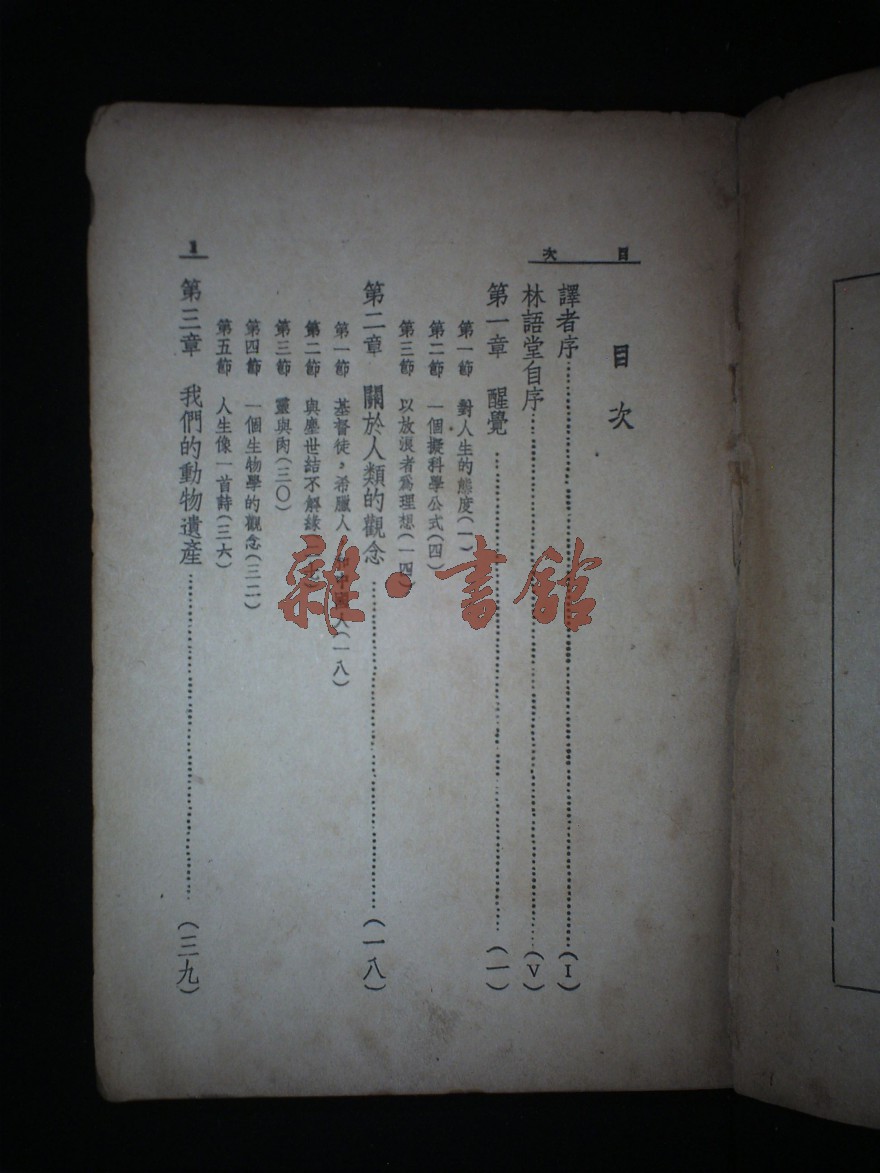 目次
目次
譯者序……(I)
林語堂自序……(V)
第一章 醒覺……(一)
第一節 對人生的態度(一)
第二節 一個擬科學公式(四)
第三節 以放浪者爲理想(一四)
第二章 關於人類的觀念……(一八)
第一節 基督徒，希臘人 和中國人(一八)
第二節 與塵世結不解緣
第三節 靈與肉(三〇)
第四節 一個生物學的觀念(三二)
第五節 人生像一首詩(三六)
第三章 我們的動物遺產……(三九)
1
雜·書館